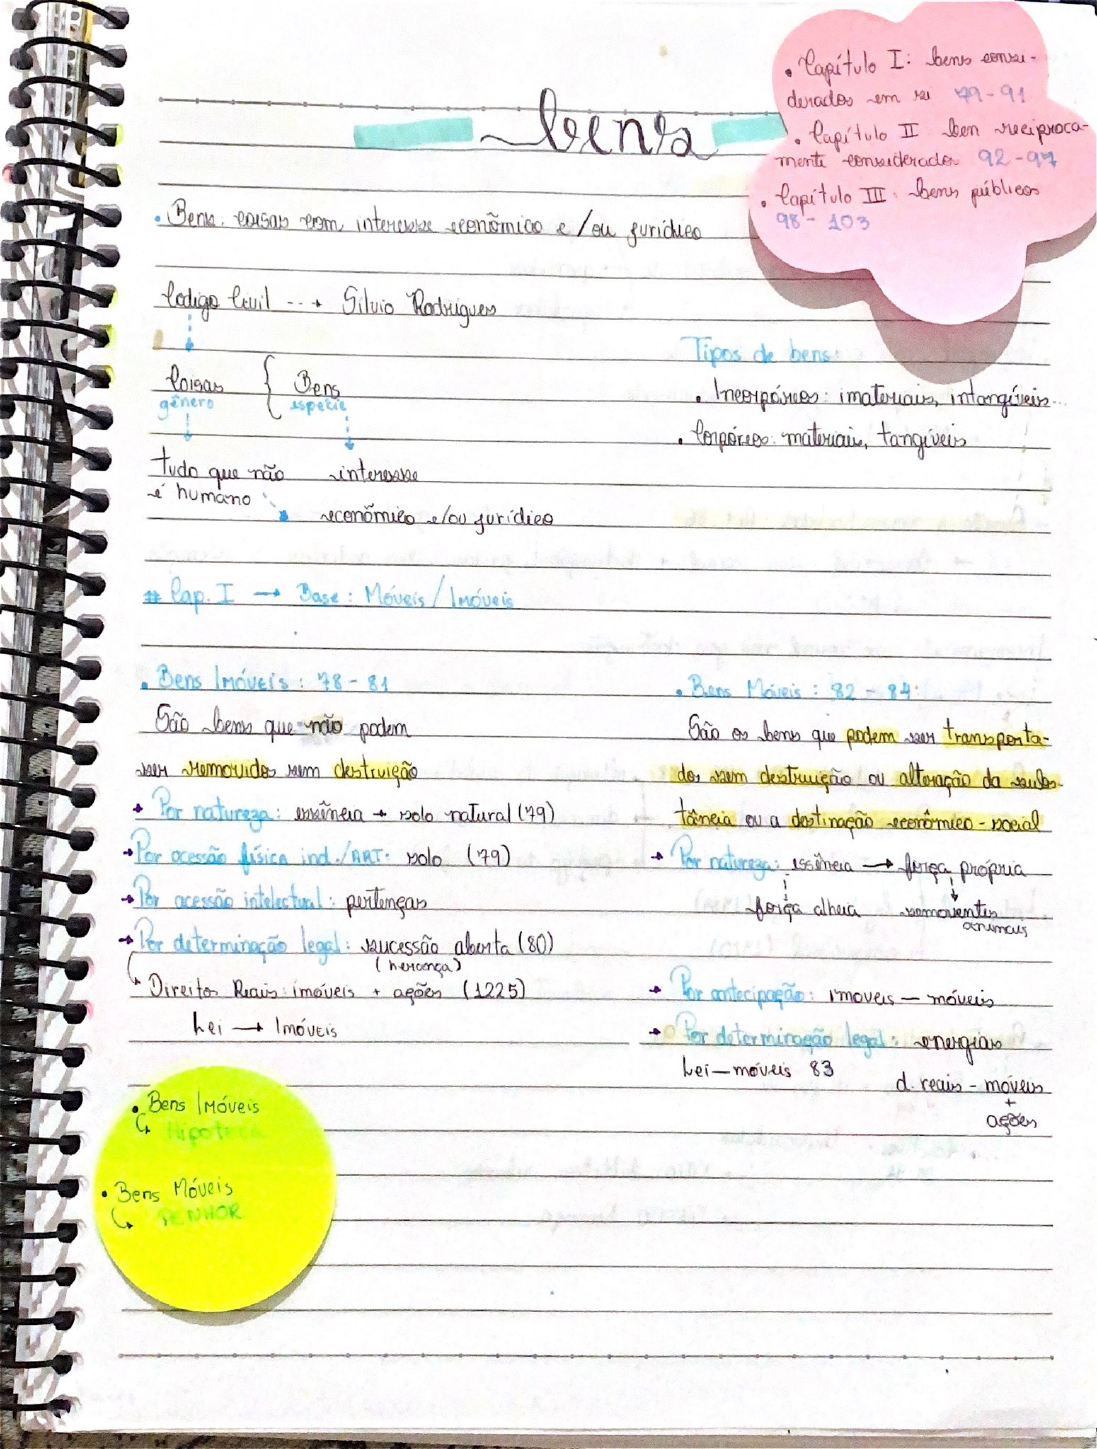 bens
• Capítulo I: bens consi-
derados em si 79-91
• Capítulo II bem reciproca-
mente considerados 92-97
• Capítulo III: bens públicos
98-103
• Bens: coisas com interesse econômico e/ou jurídico
Codigo Civil --→ Silvio Rodrigues
Coisas { Bens
gênero espécie
tudo que não interesse
é humano
econômico e/ou jurídico
Tipos de bens:
• Incorpóreos: imateriais, intangíveis...
• Corpóreos: materiais, tangíveis
# Cap. I → Base: Móveis/Imóveis
• Bens Imóveis: 78-81
São bens que não podem
ser removidos sem destruição
→ Por natureza: essência → solo natural (79)
→ Por acessão física ind./ART: solo (79)
→ Por acessão intelectual: pertenças
→ Por determinação legal: sucessão aberta (80)
(herança)
Direitos Reais: imóveis + ações (1225)
Lei → Imóveis
• Bens Móveis: 82-84:
São os bens que podem ser transporta-
dos sem destruição ou alteração da subs-
tância ou a destinação econômico-social
→ Por natureza: essência → força própria
força alheia semoventes
animais
→ Por antecipação: imoveis — móveis
→ Por determinação legal: energias
Lei—móveis 83
d. reais - móveis
+
ações
• Bens Imóveis
Hipoteca
• Bens Móveis
PENHOR